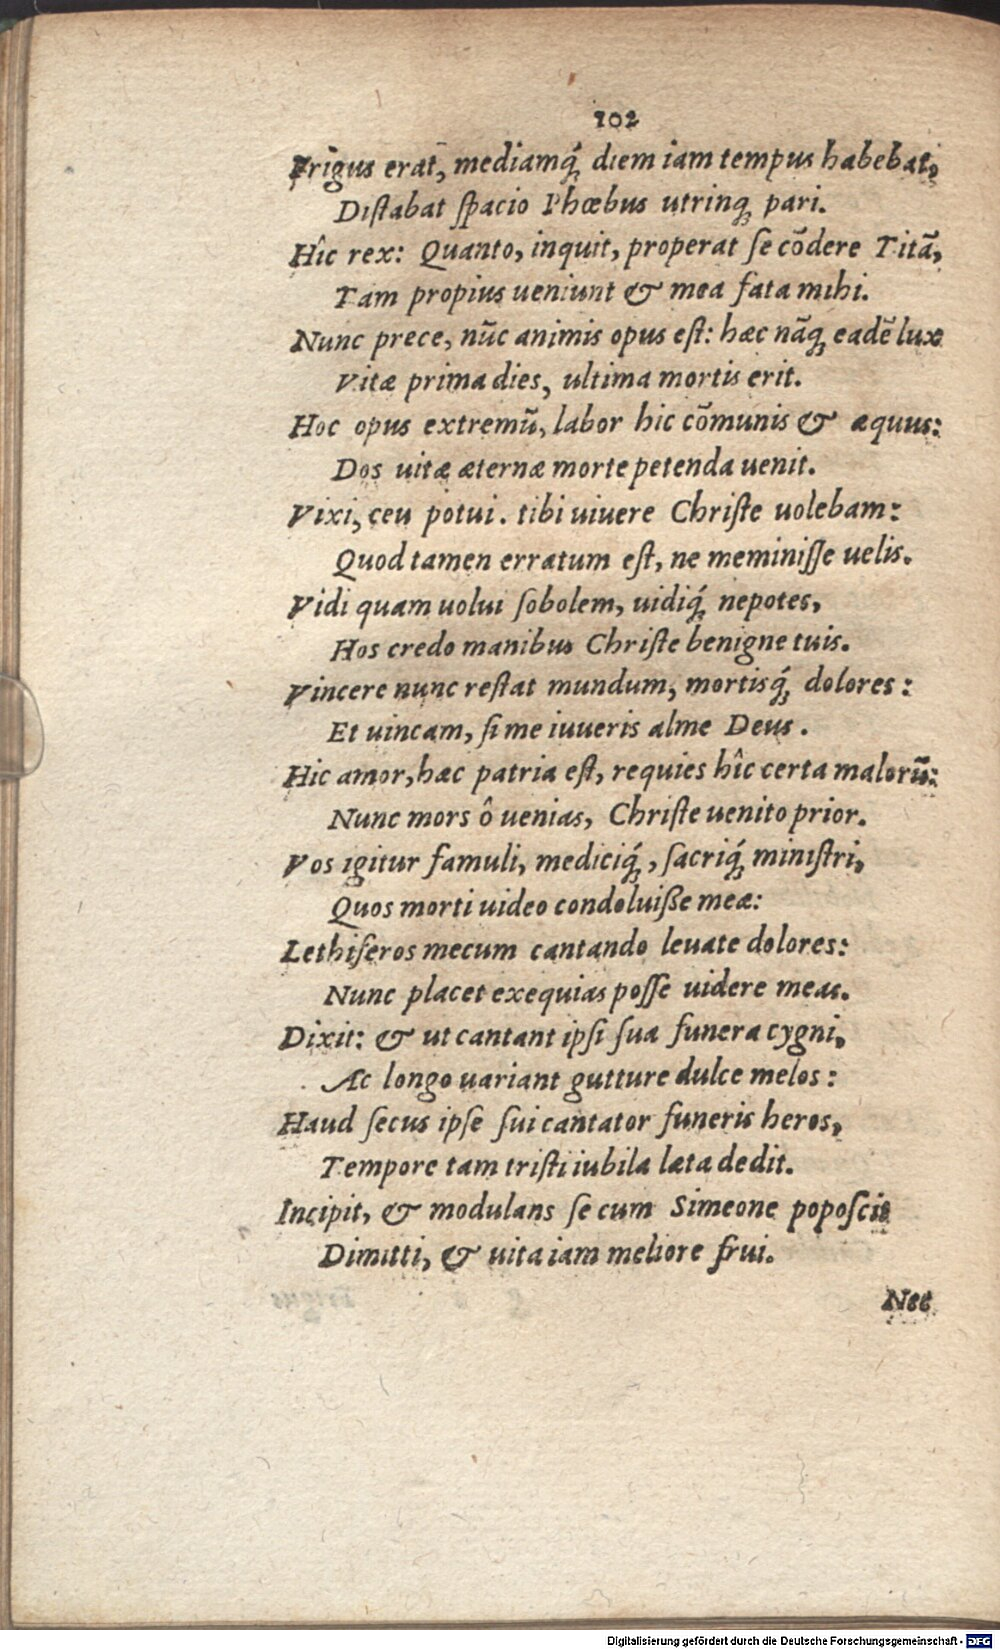 102
Frigus erat, mediamq́; diem iam tempus habebat,
Diſtabat ſpacio Phœbus utrinq; pari.
Hîc rex: Quanto, inquit, properat ſe cõdere Titã,
Tam propius veniunt & mea fata mihi.
Nunc prece, nũc animis opus eſt: hæc nãq; eadẽ lux
Vitæ prima dies, ultima mortis erit.
Hoc opus extremũ, labor hic cõmunis & æquus:
Dos uitæ æternæ morte petenda uenit.
Vixi, ceu potui. tibi uiuere Chriſte uolebam:
Quod tamen erratum eſt, ne meminiſſe uelis.
Vidi quam uolui ſobolem, uidiq́; nepotes,
Hos credo manibus Chriſte benigne tuis.
Vincere nunc reſtat mundum, mortisq́; dolores:
Et uincam, ſi me iuueris alme Deus.
Hic amor, hæc patria eſt, requies hîc certa malorũ:
Nunc mors ô uenias, Chriſte uenito prior.
Vos igitur famuli, mediciq́;, ſacriq́; miniſtri,
Quos morti uideo condoluiße meæ:
Lethiferos mecum cantando leuate dolores:
Nunc placet exequias poſſe uidere meas.
Dixit: & ut cantant ipſi ſua funera cygni,
Ac longo uariant gutture dulce melos:
Haud ſecus ipſe ſui cantator funeris heros,
Tempore tam triſti iubila læta dedit.
Incipit, & modulans ſe cum Simeone popoſcit
Dimitti, & uita iam meliore frui.
Nec
Digitalisierung gefördert durch die Deutsche Forschungsgemeinschaft - DFG